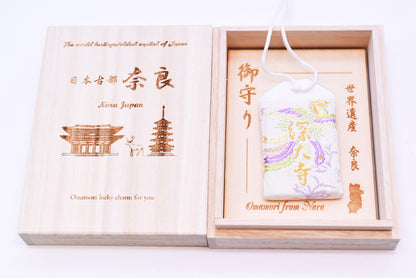 The world heritage/oldest capital of Japan
日本古都 奈良
Nara Japan
Omamori lucky charm for you
御守り
世界遺産 奈良
Omamori from Nara